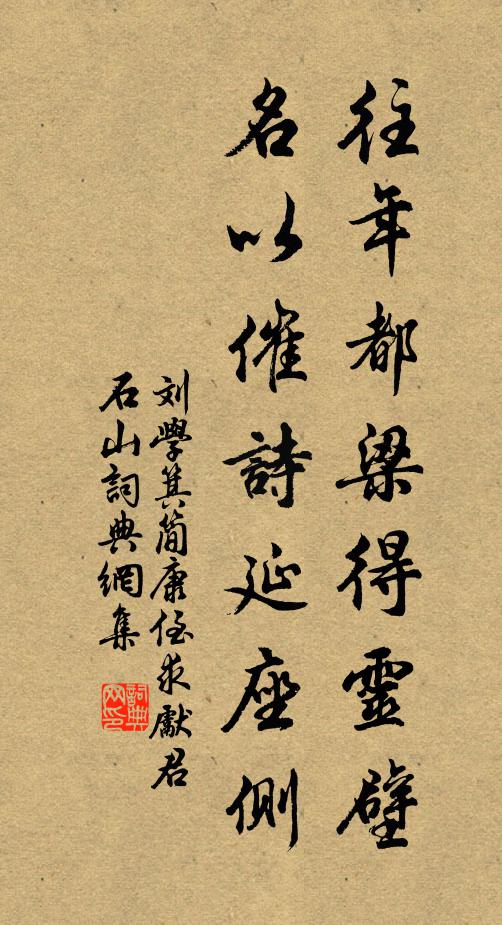 往年都梁得靈壁
名以催詩延座側
刘學箕简康侄求獻君
石山詞典網集
詞典网印